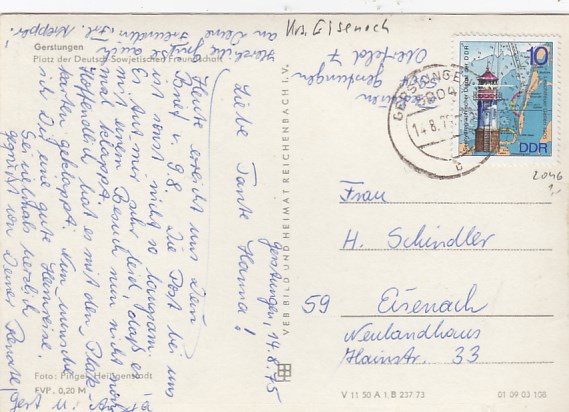 Gerstungen
Platz der Deutsch-Sowjetischen Freundschaft
Krs. Eisenach
Oberfeld 7
Gerstungen
Gerstungen, 14.8.75
Liebe Tante Hanna!
Heute erreicht uns Dein
Brief v. 9.8. Die Post bei uns
ist sonst nicht so langsam.
Es tut mir sehr leid, daß es
mit einem Besuch nun nicht
mal klappt.
Hoffentlich hat es mit den Platz-
karten geklappt. Nun wünsche
ich Dir eine gute Heimreise.
Sei nochmals herzlich
gegrüßt von Deiner Renate,
Herzliche Grüße auch
an Deine Freundin Frl. Klopper.
VEB BILD UND HEIMAT REICHENBACH I. V.
Foto: Finger, Heiligenstadt
EVP. 0,20 M
GERSTUNGEN
14.8.75
10
DDR
2046
Frau
H. Schindler
59 Eisenach
Neulandhaus
Hainstr. 33
V 11 50 A 1.B 237 73
01 09 03 108